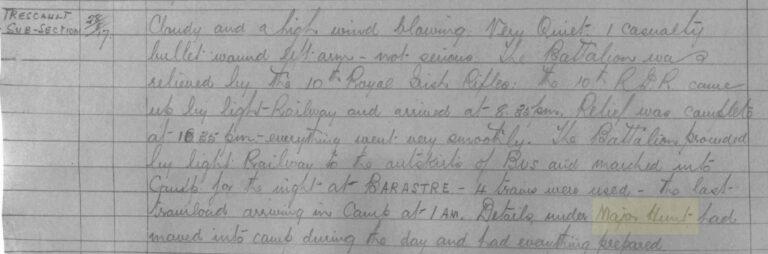 TRESCAULT SUB-SECTION 28/ /17 Cloudy and a high wind blowing. Very Quiet. 1 casualty
bullet wound left arm - not serious. The Battalion was
relieved by the 10th Royal Irish Rifles: the 10th R.I.R came
up by light Railway and arrived at 8.35 pm. Relief was complete
at 10 35 pm - everything went very smoothly. The Battalion proceeded
by light Railway to the outskirts of Bus and marched into
Camp for the night at BARASTRE - 4 trains were used - the last
trainload arriving in Camp at 1 AM. Details under Major Hunt had
moved into camp during the day and had everything prepared.